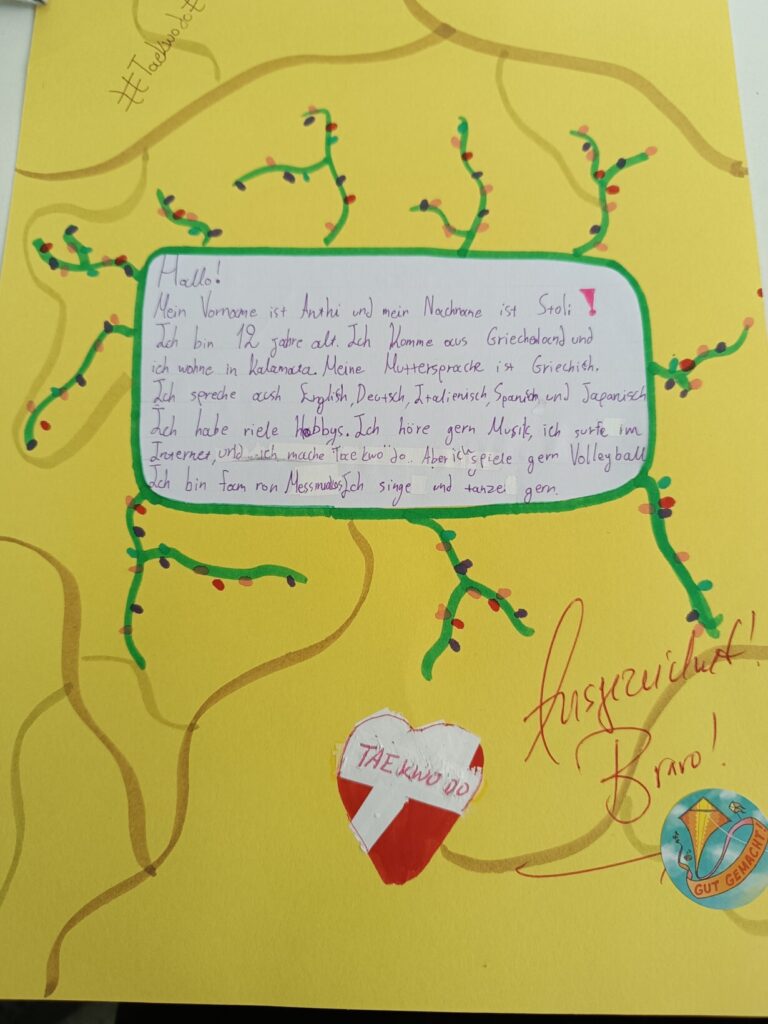 #Taekwodo
Hallo!
Mein Vorname ist Anthi und mein Nachname ist Stoli!
Ich bin 12 jahre alt. Ich komme aus Griecheland und
ich wohne in Kalamata. Meine Muttersprache ist Griechish.
Ich spreche aush English, Deutsch, Italienisch, Spanish, und Japanisch
Ich habe viele Hobbys. Ich höre gern Musik, ich surfe im
Internet, und ich mache Taekwo do. Aber ich spiele gern Volleyball
Ich bin fam von Ich singe und tanze gern.
TAEKWODO
Ausgezeichnet!
Bravo!
GUT GEMACHT!